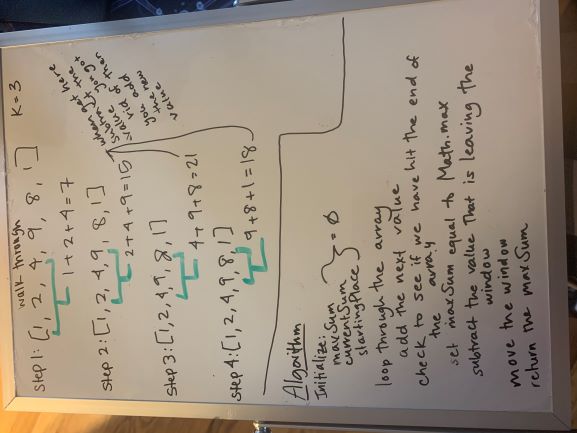 walk through
K = 3
Step 1: [1, 2, 4, 9, 8, 1]
1 + 2 + 4 = 7
Step 2: [1, 2, 4, 9, 8, 1]
2 + 4 + 9 = 15
Step 3: [1, 2, 4, 9, 8, 1]
4 + 9 + 8 = 21
Step 4: [1, 2, 4, 9, 8, 1]
9 + 8 + 1 = 18
when get here
subtract the
value you got
rid of then
you add
the new
value
Algorithm
Initialize:
maxSum
currentSum
startingPlace
= 0
loop through the array
add the next value
check to see if we have hit the end of
the array
set maxSum equal to Math.max
subtract the value that is leaving the
window
move the window
return the maxSum